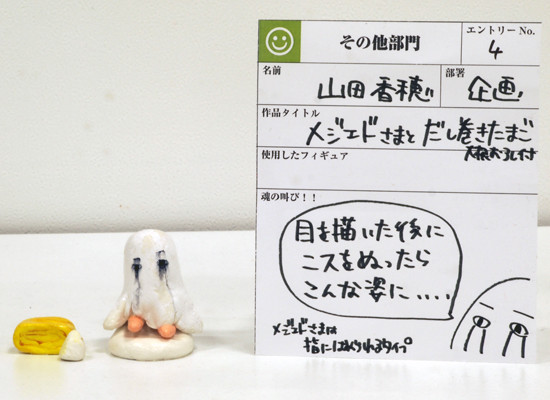 その他部門
エントリー No.
4
名前
山田 香穂
部署
企画!
作品タイトル
メジェドさまと だし巻きたまご
大根おろし付
使用したフィギュア
魂の叫び！！
目を描いた後に
ニスをぬったら
こんな姿に....
メジェドさまは
指にはめられるタイプ